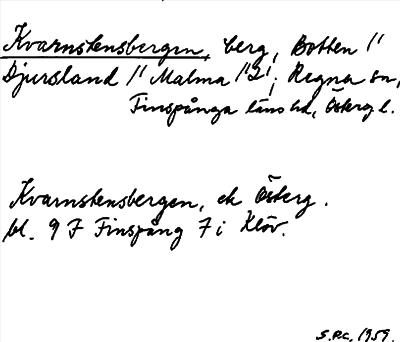 Kvarnstensbergen, berg, Botten 1/1
Djursland 1/1 Malma 1/2, Regna sn,
Finspånga läns hd, Österg l.
Kvarnstensbergen, ek Österg.
bl. 9 F Finspång 7 i Klöv.
S.P.C. 1959.